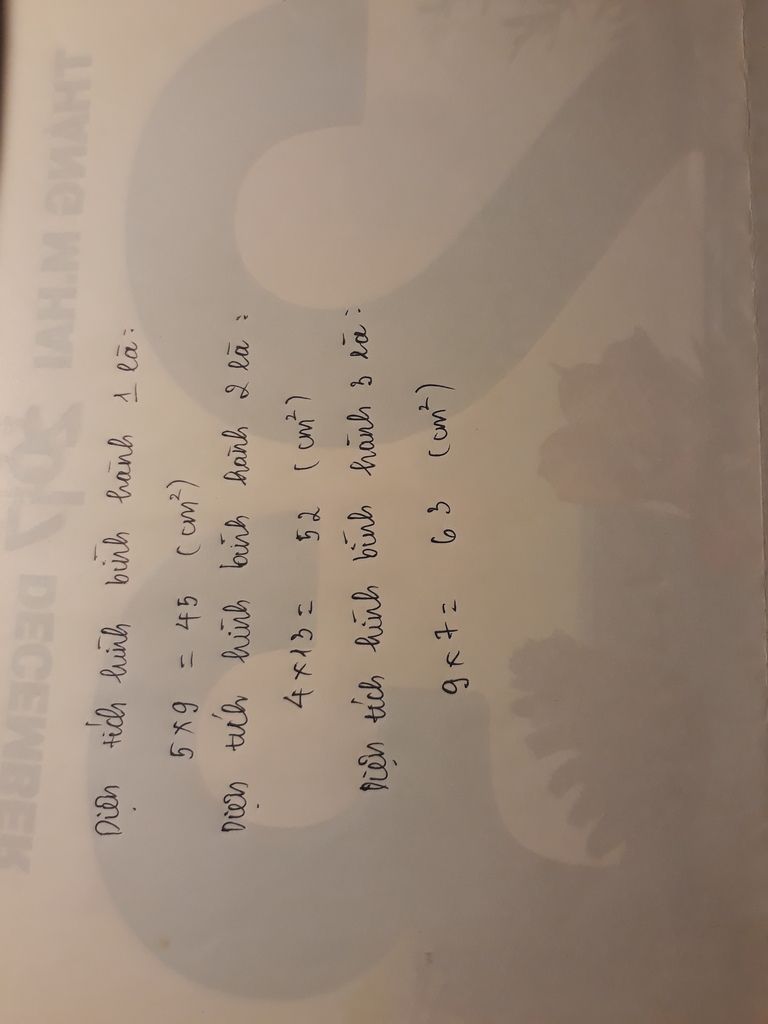 Diện tích hình bình hành 1 là:
5 x 9 = 45 (cm²)
Diện tích hình bình hành 2 là:
4 x 13 = 52 (cm²)
Diện tích hình bình hành 3 là:
9 x 7 = 63 (cm²)
THÁNG M.HAI 2017 DECEMBER